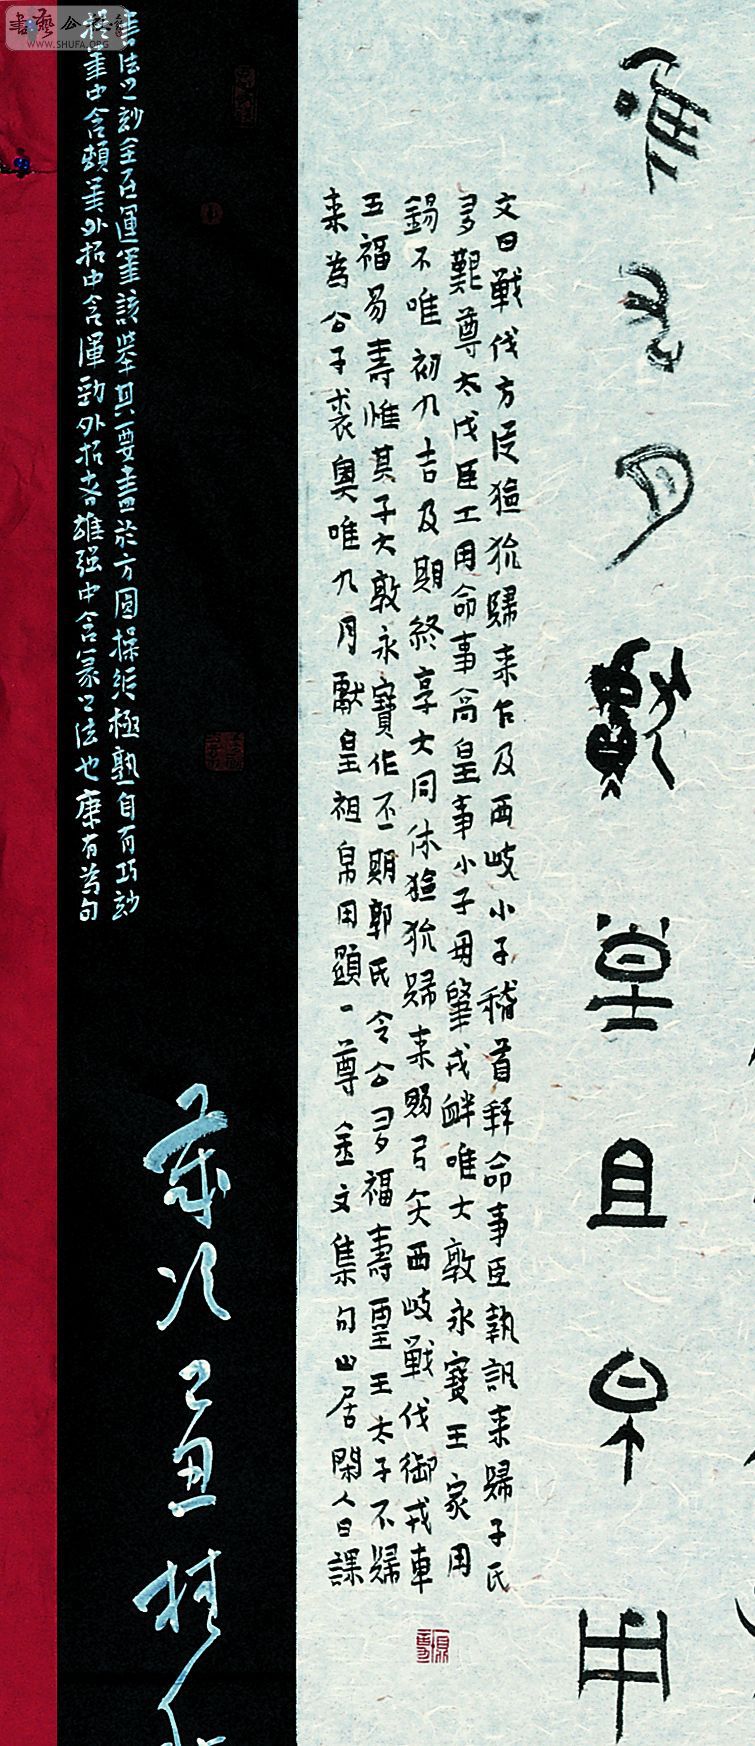 唯九月獻皇且帛用
文曰戰伐方浞獫狁歸来乍及西岐小子稽首拜命事臣執訊来歸子氏
多艱尊太戊臣工用命事爲皇事小子毋肇戎衅唯大敦永寶王家用
錫不唯初九吉及期終享大同休獫狁歸来賜弓矢西岐戰伐御戎車
五福易壽惟其子大敦永寶作丕期郭氏令公多福壽里王太子不歸
来為公子裘奥唯九月獻皇祖帛用顯一尊金文集句山居閑人日課
書法之妙全在運筆該舉其要盡於方圓操縱極熟自有巧妙
提筆中含頓筆外拓中含渾勁外拓者雄强中含篆之法也康有為句
歲次己丑桂秋
書藝公社
WWW.SHUFA.ORG